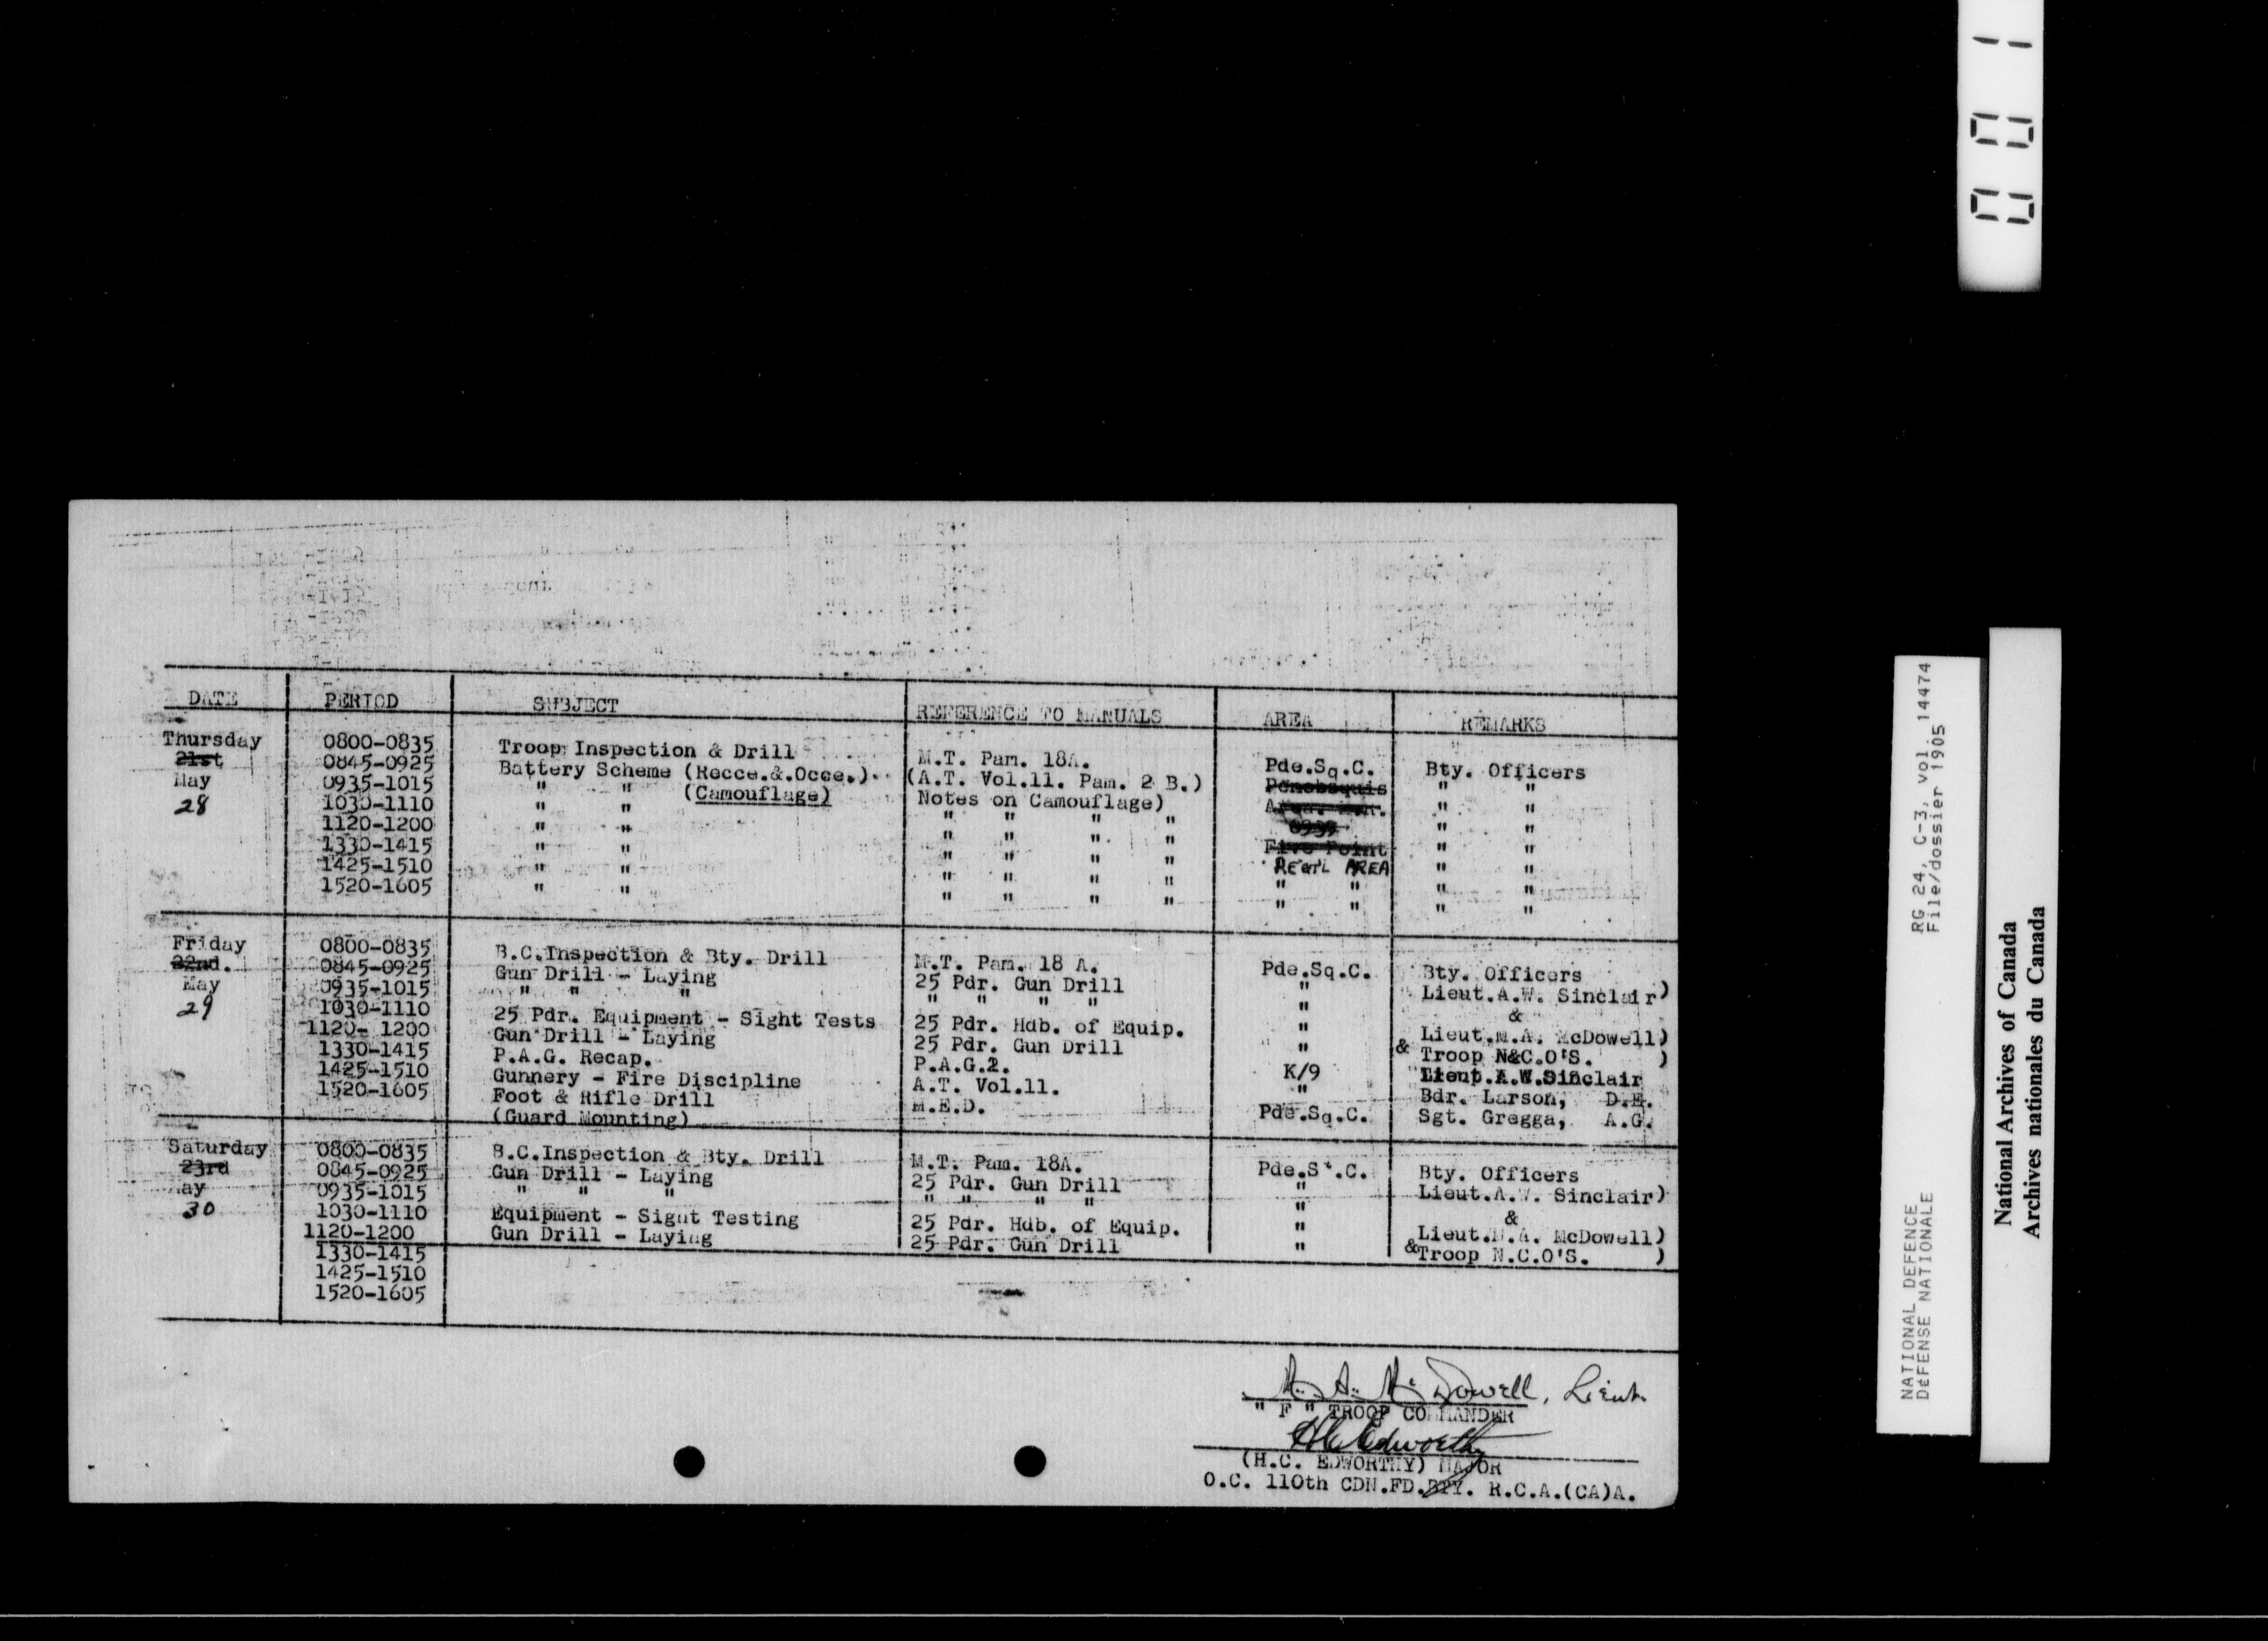 DATE PERIOD SUBJECT REFERENCE TO MANUALS AREA REMARKS
Thursday 0800-0835 Troop Inspection & Drill M.T. Pam. 18A. Pde.Sq.C. Bty. Officers
21st 0845-0925 Battery Scheme (Recce.&.Occe.) (A.T. Vol.11. Pam. 2 B.) Penobsquis " "
May 0935-1015 " " (Camouflage) Notes on Camouflage) " "
28 1030-1110 " " " " " " " "
1120-1200 " " " " " " Five Point " "
1330-1415 " " " " " " REGT'L AREA " "
1425-1510 " " " " " " " " " "
1520-1605 " " " " " " " " " "
Friday 0800-0835 B.C.Inspection & Bty. Drill M.T. Pam. 18 A. Pde.Sq.C. Bty. Officers
22nd. 0845-0925 Gun Drill - Laying 25 Pdr. Gun Drill " Lieut.A.W. Sinclair)
May 0935-1015 " " " " " " " " &
29 1030-1110 25 Pdr. Equipment - Sight Tests 25 Pdr. Hdb. of Equip. " Lieut.M.A. McDowell)
1120- 1200 Gun Drill - Laying 25 Pdr. Gun Drill " & Troop N.C.O'S. )
1330-1415 P.A.G. Recap. P.A.G.2. K/9 Lieut.A.W.Sinclair
1425-1510 Gunnery - Fire Discipline A.T. Vol.11. " Bdr. Larson, D.E.
1520-1605 Foot & Rifle Drill M.E.D. Pde.Sq.C. Sgt. Gregga, A.G.
(Guard Mounting)
Saturday 0800-0835 B.C.Inspection & Bty. Drill M.T. Pam. 18A. Pde.S .C. Bty. Officers
23rd 0845-0925 Gun Drill - Laying 25 Pdr. Gun Drill " Lieut.A.W. Sinclair)
ay 0935-1015 " " " " " " " " &
30 1030-1110 Equipment - Sight Testing 25 Pdr. Hdb. of Equip. " Lieut.M.A. McDowell)
1120-1200 Gun Drill - Laying 25 Pdr. Gun Drill " &Troop N.C.O'S. )
1330-1415
1425-1510
1520-1605
M. A. McDowell, Lieut.
" F " TROOP COMMANDER
H C Edworthy
(H.C. EDWORTHY) MAJOR
O.C. 110th CDN.FD.BTY. R.C.A.(CA)A.
001
NATIONAL DEFENCE RG 24, C-3, vol. 14474
DÉFENSE NATIONALE File/dossier 1905
National Archives of Canada
Archives nationales du Canada